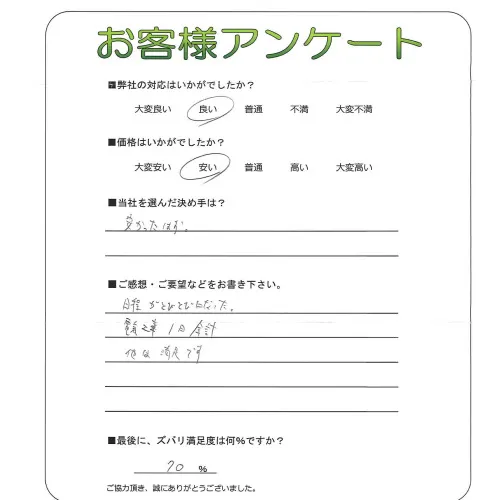 お客様アンケート
■弊社の対応はいかがでしたか？
大変良い 良い 普通 不満 大変不満
■価格はいかがでしたか？
大変安い 安い 普通 高い 大変高い
■当社を選んだ決め手は？
安かったはず。
■ご感想・ご要望などをお書き下さい。
日程がとびとびになった。
工事 1日 余計
他は 満足です
■最後に、ズバリ満足度は何％ですか？
70 ％
ご協力頂き、誠にありがとうございました。